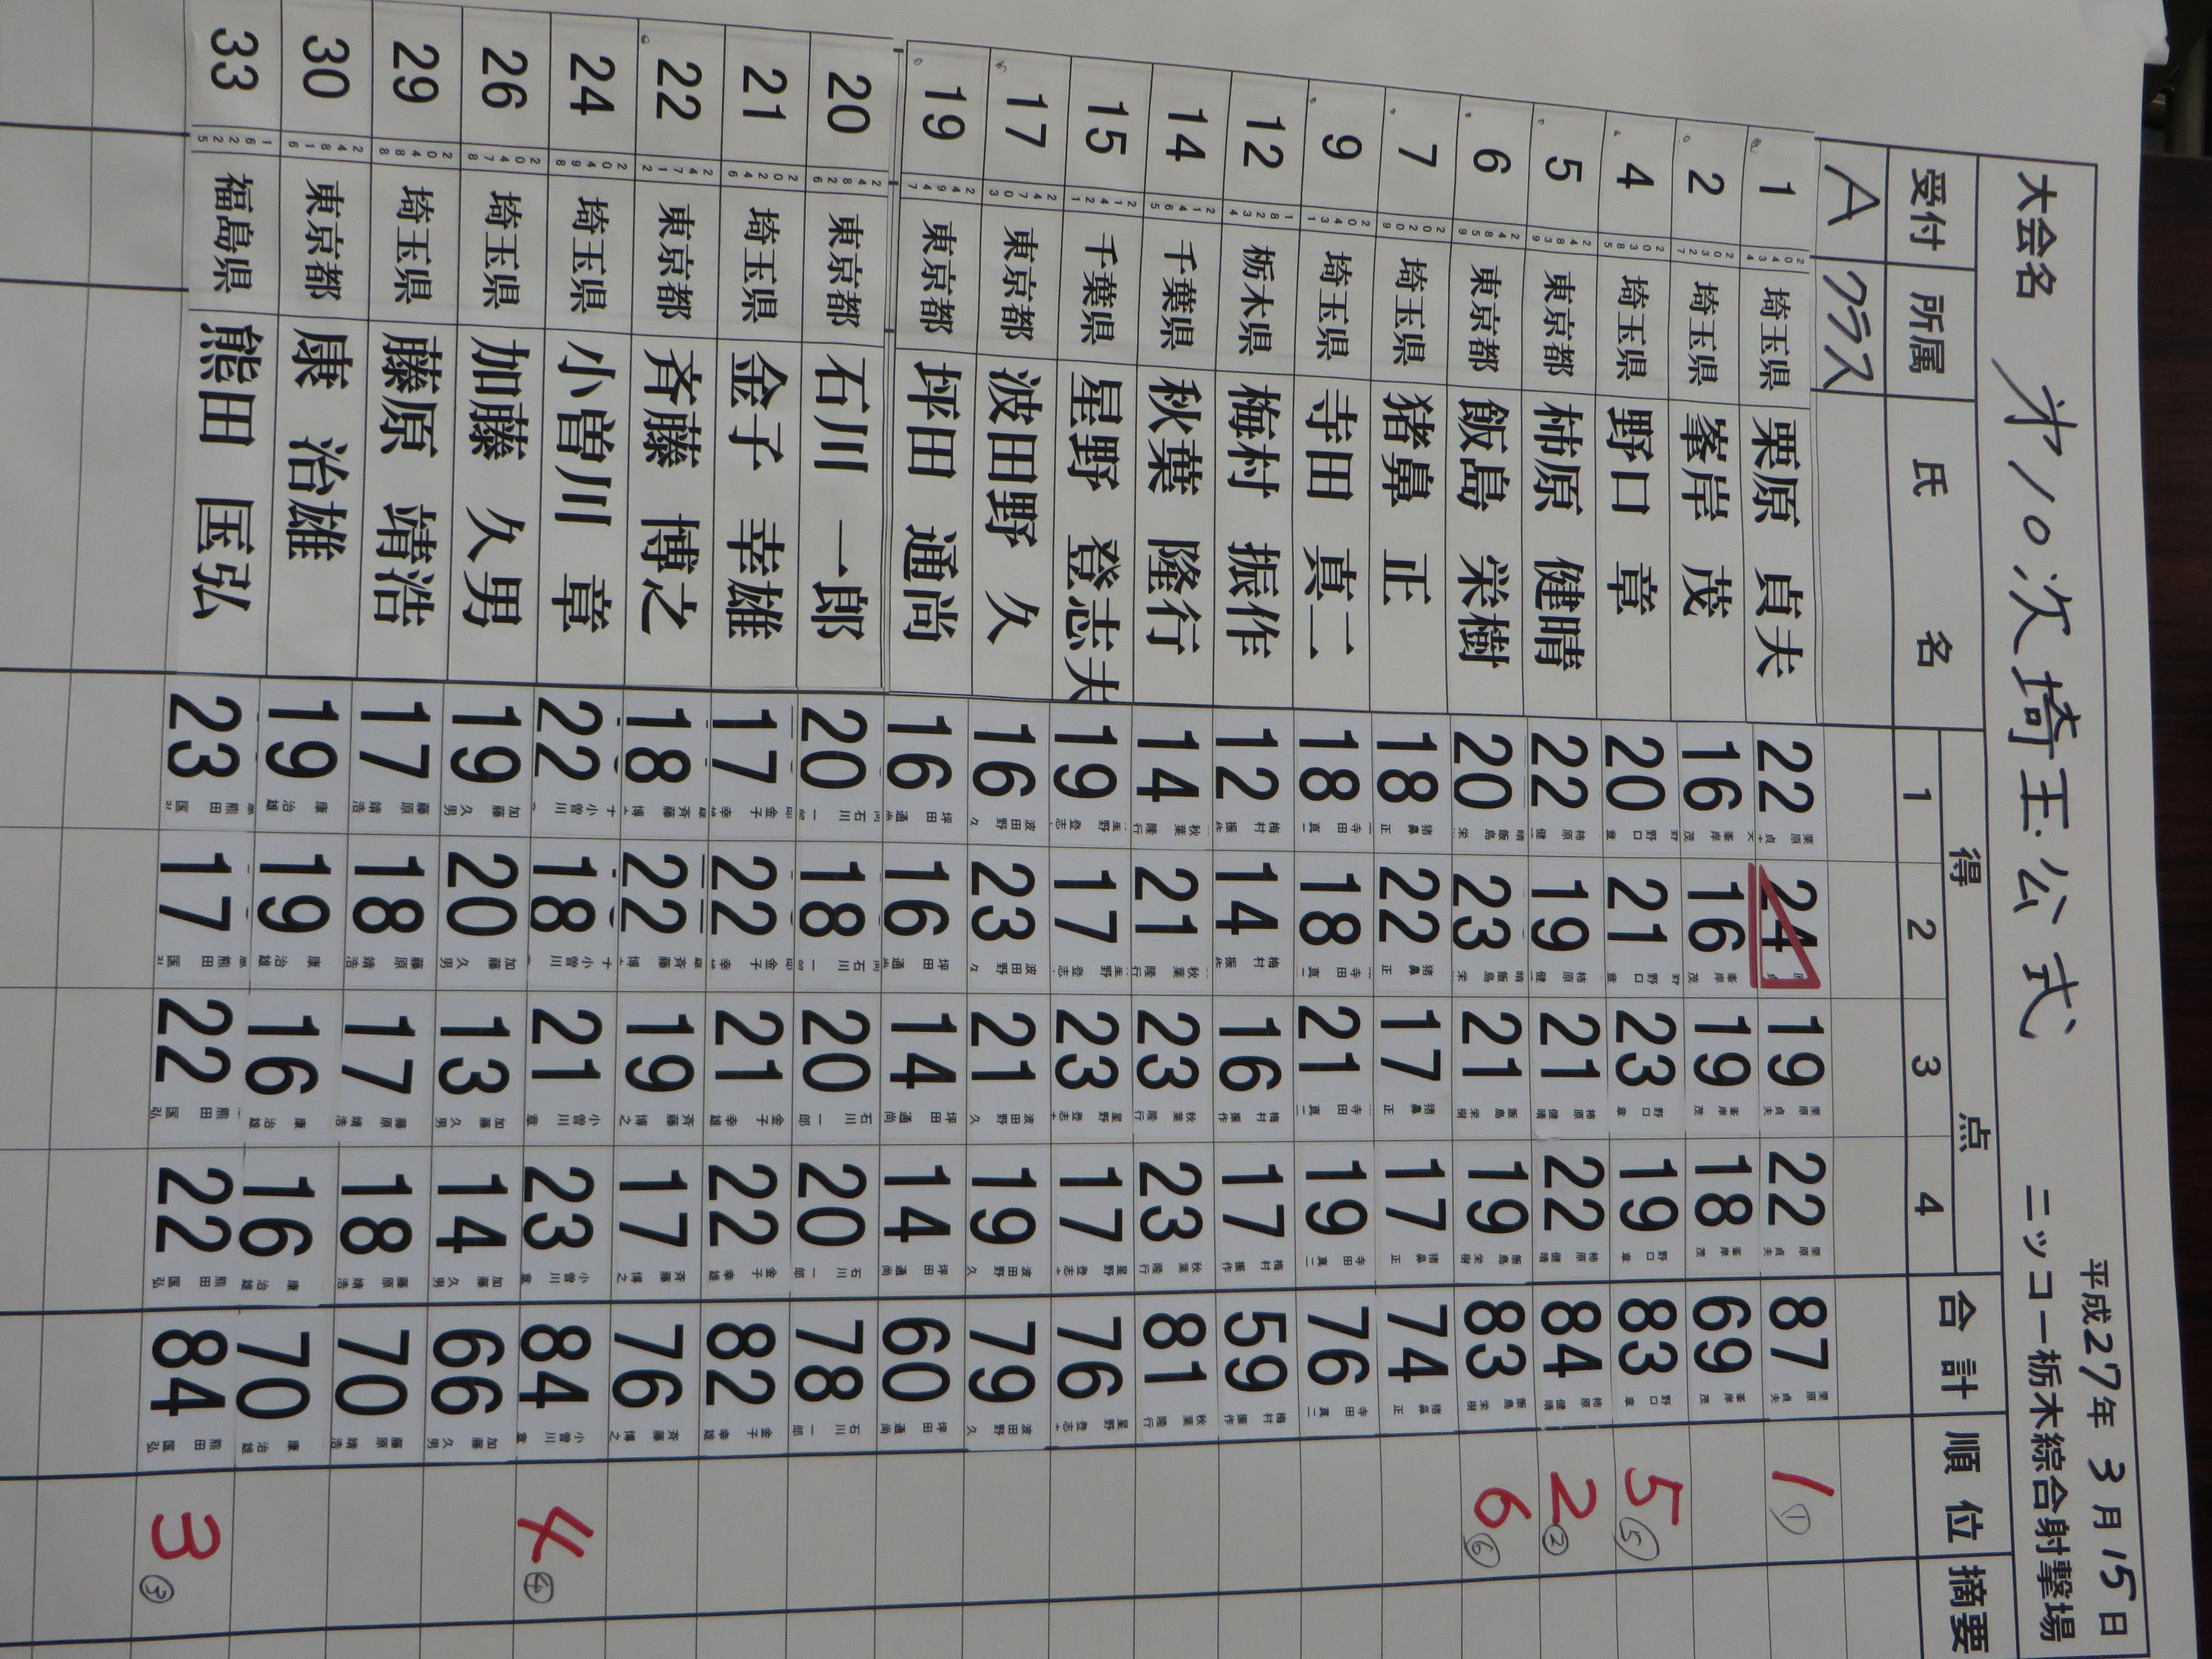 平成27年 3月15日
大会名 オ10次埼玉公式 ニッコー栃木綜合射撃場
受付 所属 氏名 得点 合計 順位 摘要
1 2 3 4
Aクラス
1 埼玉県 栗原 貞夫 22 24 19 22 87 1 ①
2 埼玉県 峯岸 茂 16 16 19 18 69
4 埼玉県 野口 章 20 21 23 19 83 5 ⑤
5 東京都 柿原 健晴 22 19 21 22 84 2 ②
6 東京都 飯島 栄樹 20 23 21 19 83 6 ⑥
7 埼玉県 猪鼻 正 18 22 17 17 74
9 埼玉県 寺田 真二 18 18 21 19 76
12 栃木県 梅村 振作 12 14 16 17 59
14 千葉県 秋葉 隆行 14 21 23 23 81
15 千葉県 星野 登志夫 19 17 23 17 76
17 東京都 波田野 久 16 23 21 19 79
19 東京都 坪田 通尚 16 16 14 14 60
20 東京都 石川 一郎 20 18 20 20 78
21 埼玉県 金子 幸雄 17 22 21 22 82
22 東京都 斉藤 博之 18 22 19 17 76
24 埼玉県 小曽川 章 22 18 21 23 84 4 ④
26 埼玉県 加藤 久男 19 20 13 14 66
29 埼玉県 藤原 靖浩 17 18 17 18 70
30 東京都 康 治雄 19 19 16 16 70
33 福島県 熊田 国弘 23 17 22 22 84 3 ③